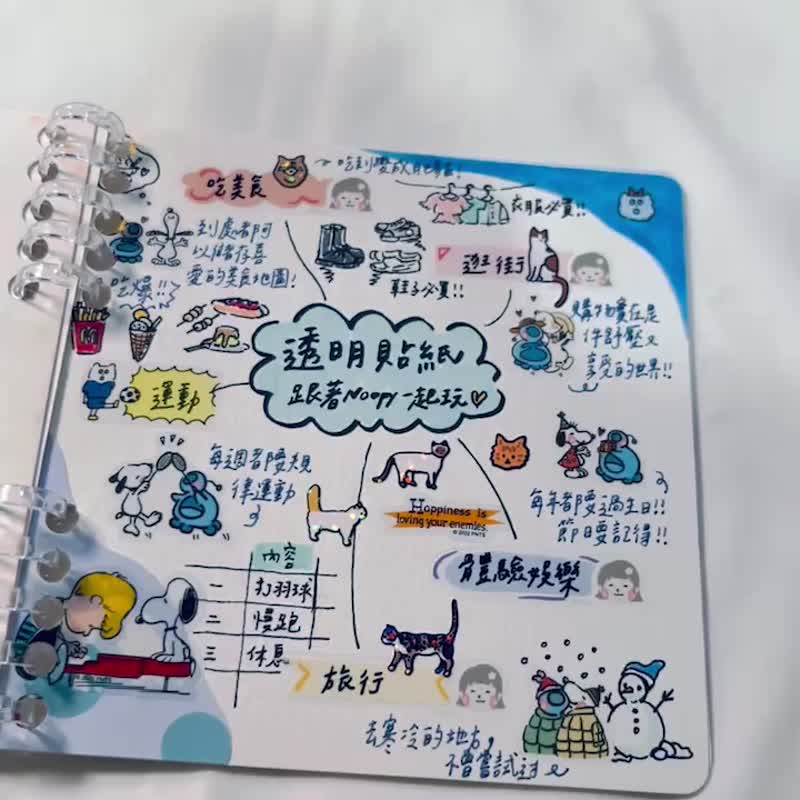 吃美食
吃到變
到處都可
以儲存喜
愛的美食地圖!
吃爆!!
衣服必買!!
鞋子必買!!
逛街
購物實在是
件舒壓又
享受的世界!!
透明貼紙
跟著Noopy一起玩
運動
每週都要規
律運動
內容
一 打羽球
二 慢跑
三 休息
Happiness is
loving your enemies.
每年都要過生日!!
節日要記得!!
體驗娛樂
旅行
去寒冷的地方,
不曾嘗試過